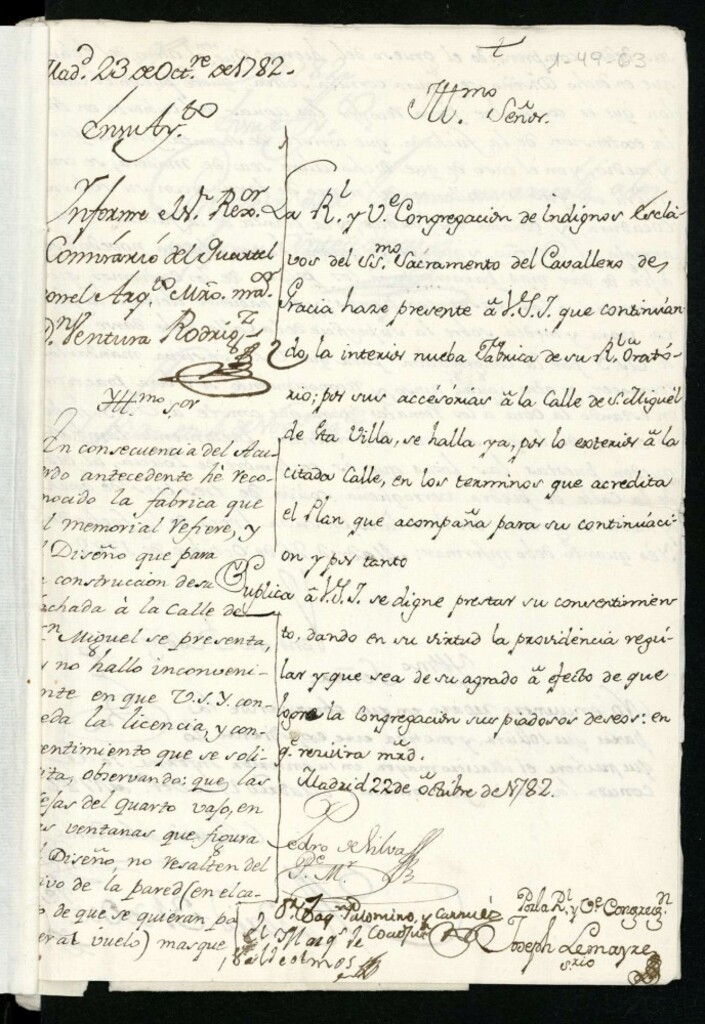 Mad.d 23 de Oct.re de 1782.
En su Ay.to
Informe el S.r Rex.or
Comisario del Quartel
con el Arq.to Mro. ma.or
D.n Ventura Rodrig.z
Yll.mo S.or
En consecuencia del Acu-
rdo antecedente hé reco-
nocido la fabrica que
el memorial refiere, y
Diseño que para
construccion de su
fachada à la Calle de
S.n Miguel se presenta,
y no hallo inconveni-
ente en que V.S.Y. con-
ceda la licencia, y con-
sentimiento que se soli-
cita, observando: que las
rejas del quarto vajo, en
las ventanas que figura
Diseño, no resalten del
vivo de la pared (en el ca-
so de que se quieran po
ner al vuelo) mas que
1-49-63
Yll.mo Señor.
La R.l y V.e Congregacion de indignos Escla-
vos del SS.mo Sacramento del Cavallero de
Gracia haze presente â V.S.I. que continúan
do, la interior nueba Fabrica de su R.l Orató-
rio; por sus accesorias â la Calle de S. Miguél
de esta Villa, se halla ya, por lo exterior â la
citada Calle, en los terminos que acredita
el Plan que acompaña para su continuáci-
on y por tanto
Suplica â V.S.I. se digne prestar su consentimien
to, dando en su virtud la providéncia regú-
lar y que sea de su agrado â efecto de que
logre la Congregacion sus piadosos deseos: en
q.e recivira mrd.
Madrid 22 de Octûbre de 1782.
Pedro de Silva
P.de M.r
D. Joaq.n Palomino, y
El Marq.s de
Por la R.l y V.e Congreg.n
Joseph Lemayre
s.rio